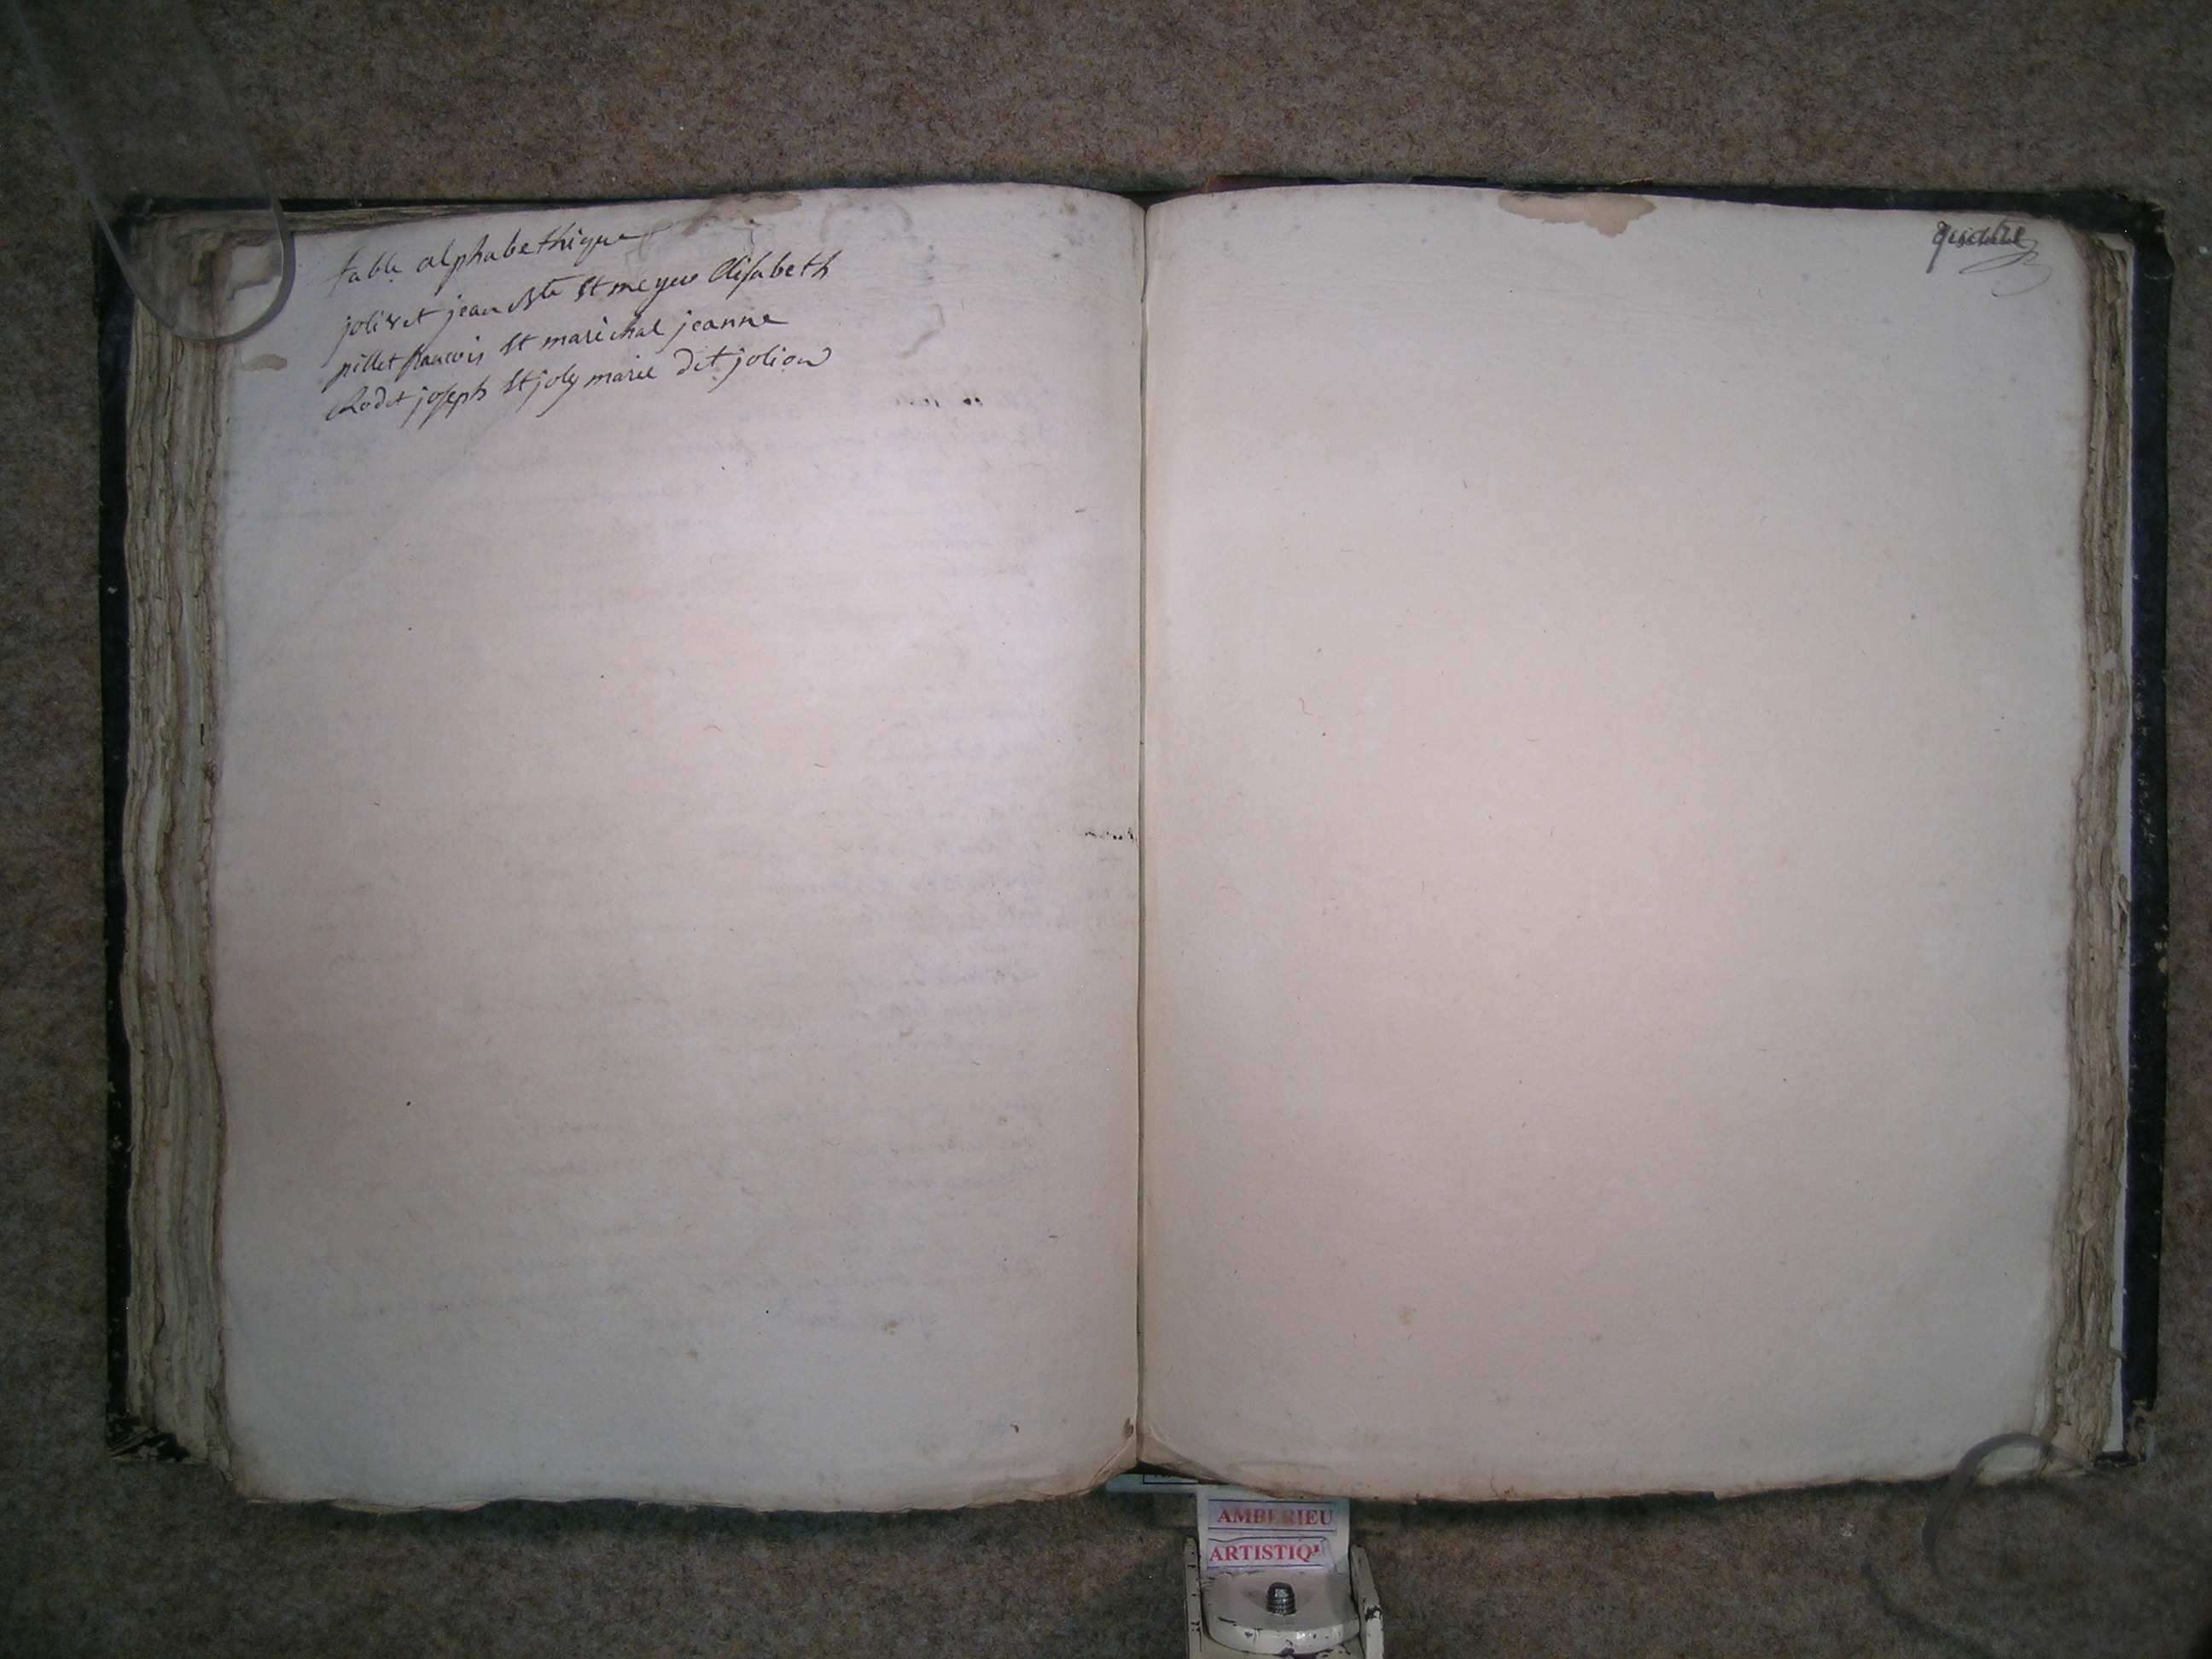 table alphabethique
jolivet jean Bte et meyer Elisabeth
pillet francois et marichal jeanne
Rodet joseph et joly marie dit jolion
AMBERIEU
ARTISTIQ